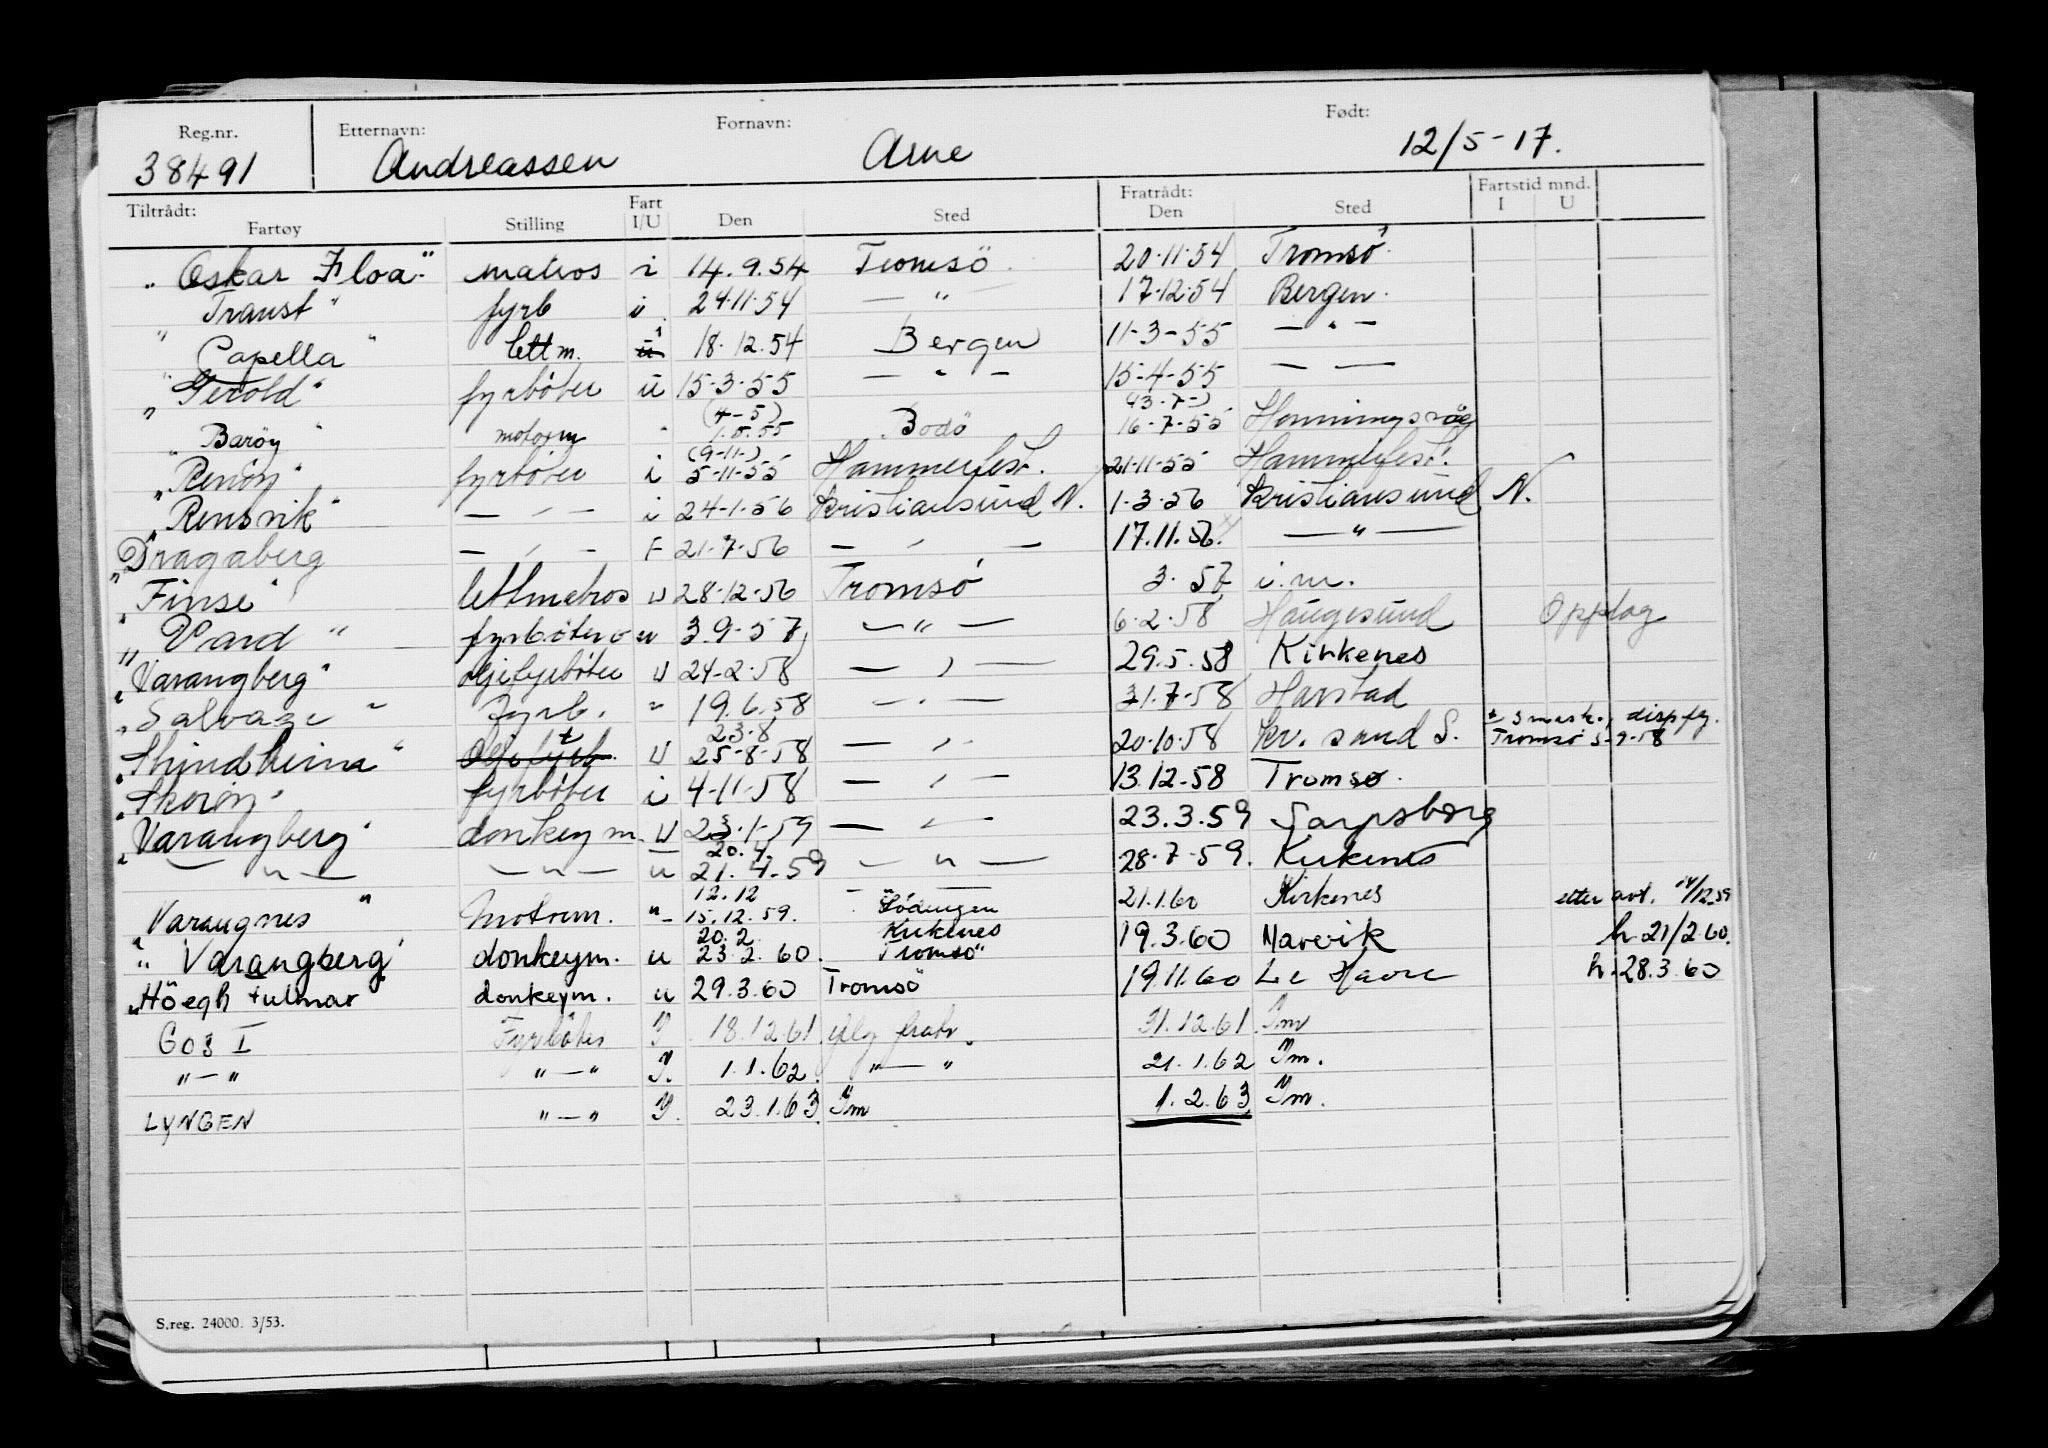 Reg.nr. Etternavn: Fornavn: Født:
38491 Andreassen Arne 12/5-17.
Tiltrådt: Fartøy Stilling Fart I/U Den Sted Fratrådt: Den Sted Fartstid mnd. I U
"Oskar Floa" matros i 14.9.54 Tromsö 20.11.54 Tromsö
"Traust" fyrb i 24.11.54 — " 17.12.54 Bergen.
"Capella" lettm. i 18.12.54 Bergen 11-3-55 — " —
"Gerold" fyrböter u 15-3-55 — " — 15-4-55 — —
(4-5) (13-7-)
"Baröy" motorm " 1.5.55 Bodö 16-7-55 Honningsvåg
(9-11-)
"Renöy" fyrböter i 5-11-55 Hammerfest. 21-11-55 Hammerfest.
"Rensvik" — " — i 24-1-56 Kristiansund N. 1-3-56 Kristiansund N.
"Dragaberg — " — F 21-7-56 — " — 17.11.56. — " —
"Finse" lettmatros u 28-12-56 Tromsö 3. 57 i.m.
"Vard" fyrböter u 3.9-57 — " — 6-2.58 Haugesund Opplag
"Varangberg" oljefyrböter U 24-2-58 — " — 29.5.58 Kirkenes
"Salvage" fyrb. " 19.6.58 — " — 31.7-58 Harstad
23-8
U 25-8-58 — " — 20-10-58 Kr. sand S. Tromsø 5-9-58
fyrböter i 4-11-58 — " — 13.12-58 Tromsø.
"Varangberg" donkeym. U 23-1-59 — " — 23.3.59 Sarpsborg
20.4.
" — " — — " — u 21.4-59 — " — 28.7-59. Kirkenes
12.12
Varangnes " Motorm. " 15.12.59. Lödingen 21.1.60 Kirkenes etter avt. 14/12.59
20.2. Kirkenes
"Varangberg" donkeym. u 23.2.60. Tromsö 19.3.60 Narvik h. 21/2.60.
"Höegh Fulmar donkeym. u 29.3.60 Tromsö 19.11.60 Le Havre h. 28.3.60
GOS I Fyrböter I 18.12.61 iflg fratr. 31.12.61 Im
" — " " — " I. 1.1.62. " — " 21.1.62 Im.
LYNGEN " — " I. 23.1.63 Im 1.2.63 Im.
S.reg. 24000. 3/53.